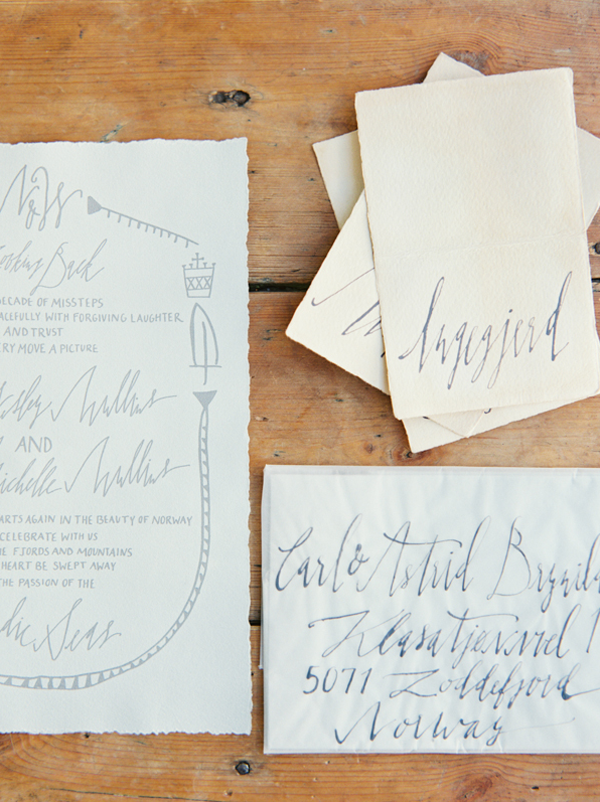 N & W
ooking Back
DECADE OF MISSTEPS
ACEFULLY WITH FORGIVING LAUGHTER
AND TRUST
ERY MOVE A PICTURE
sley Mullins
AND
ichelle Mullins
ARTS AGAIN IN THE BEAUTY OF NORWAY
CELEBRATE WITH US
E FJORDS AND MOUNTAINS
HEART BE SWEPT AWAY
THE PASSION OF THE
dic Seas
Ingegjerd
Carl & Astrid
5071 Loddefjord
Norway